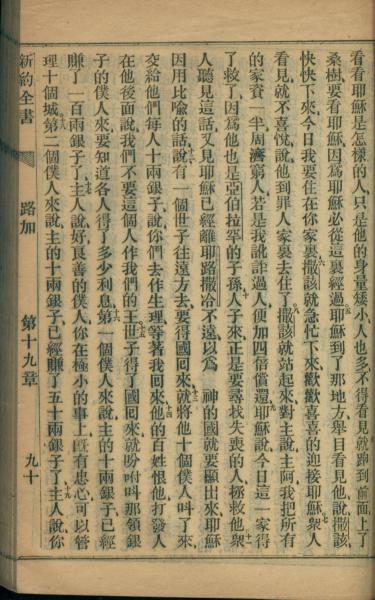 看看耶穌是怎樣的人只是他的身量矮小人也多不得看見就跑到前面上了
桑樹要看耶穌因爲耶穌必從這裏經過耶穌到了那地方舉目看見他說撒該
快快下來今日我要住在你家裏撒該就急忙下來歡歡喜喜的迎接耶穌衆人
看見就不喜悅說他到罪人家裏去住了撒該就站起來對主說主阿我把所有
的家資一半周濟窮人若是我訛詐過人便加四倍償還耶穌說今日這一家得
了救了因爲他也是亞伯拉罕的子孫人子來正是要尋找失喪的人拯救他衆
人聽見這話又見耶穌已經離耶路撒冷不遠以爲 神的國就要顯出來耶穌
因用比喩的話說有一個世子往遠方去要得國回來就將他十個僕人叫了來
交給他們每人十兩銀子說你們去作生理等著我回來他的百姓恨他打發人
在他後面說我們不要這個人作我們的王世子得了國回來就吩咐叫那領銀
子的僕人來要知道各人得了多少利息第一個僕人來說主的十兩銀子已經
賺了一百兩銀子了主人說好良善的僕人你在極小的事上旣有忠心可以管
理十個城第二個僕人來說主的十兩銀子已經賺了五十兩銀子了主人說你
新約全書 路加 第十九章 九十